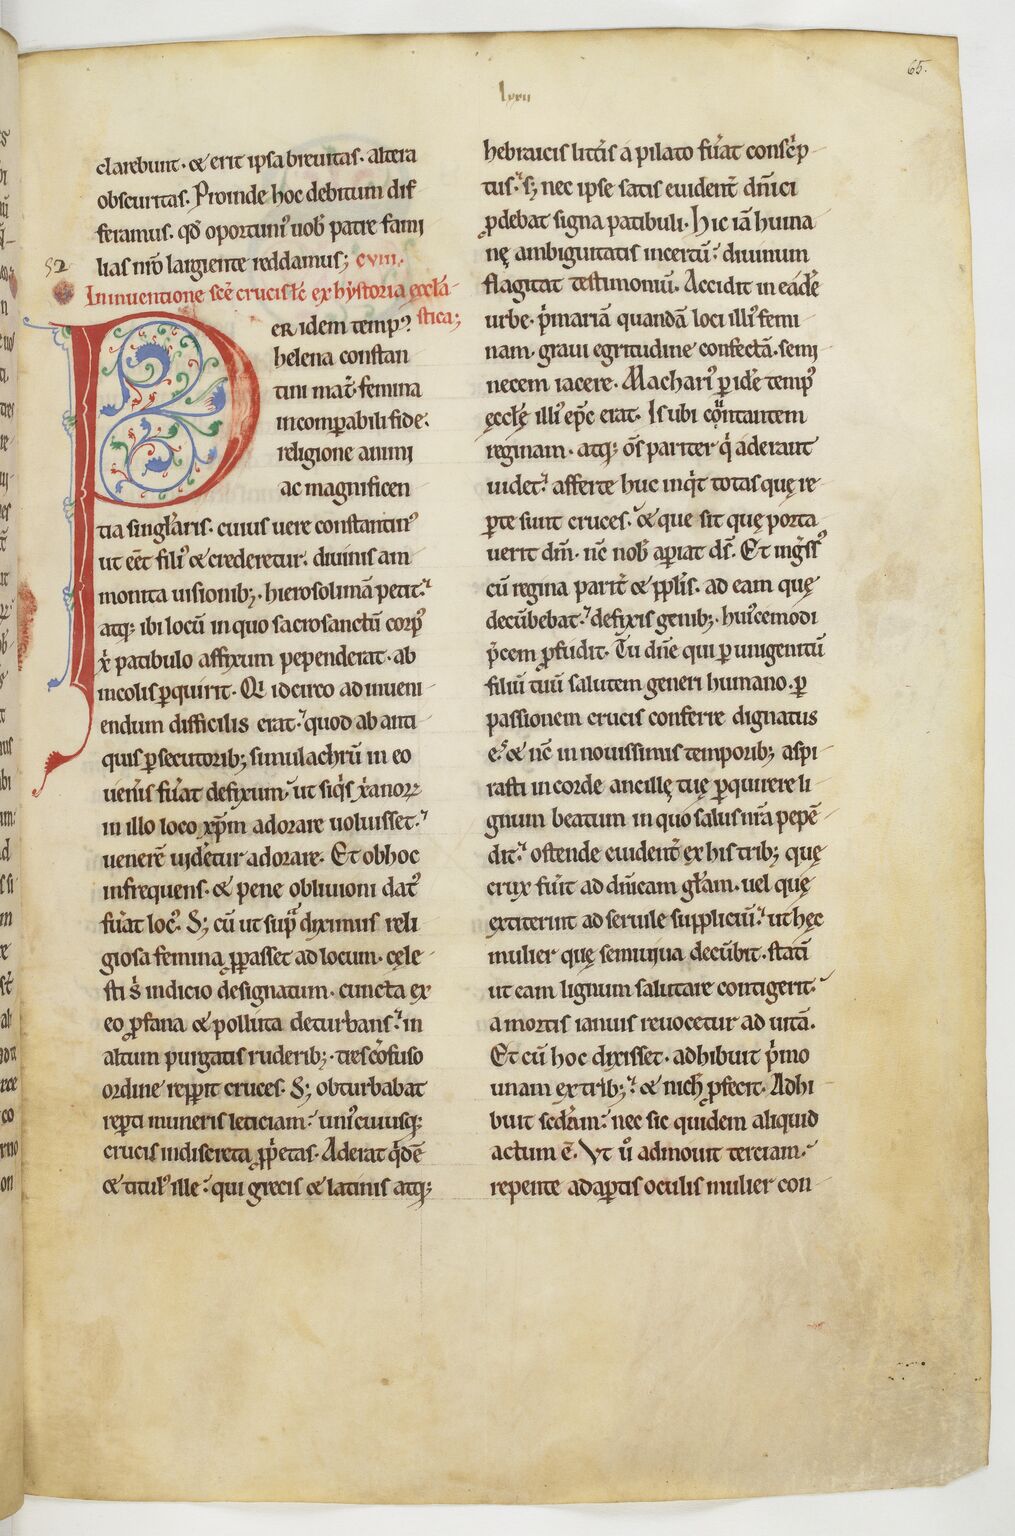 65.
lxxii
clarebunt. & erit ipsa breuitas. altera
obscuritas. Proinde hoc debitum dif
feramus. qđ oportuni᷒ uob̄ patre fami
lias nr̄o largiente reddamus; cviii.
52
In inuentione scē crucis lc̄ ex hystoria ęcclā
stica;
PER idem temp᷒
helena constan
tini mat̄. femina
incomparabili fide.
religione animi
ac magnificen
tia singl̄aris. cuius uere constantin᷒
ut eēt fili᷒ & crederetur. diuinis am
monita uisionib; hierosolimā petit.
atq; ibi locū in quo sacrosanctū corp᷒
x̄p̄i patibulo affixum pependerat. ab
incolis ꝑquirit. Qi idcirco ad inueni
endum difficilis erat. quod ab anti
quis ꝑsecutorib; simulachrū in eo
ueneris fuāt defixum. ut siqͥs xͥanoꝝ
in illo loco xp̄m adorare uoluisset.
uenerē uiderētur adorare. Et ob hoc
infrequens. & pene obliuioni dat᷒
fuāt loc᷒. S; cū ut supͣ diximus reli
giosa femina ꝓꝑasset ad locum. cęle
sti sͥ indicio designatum. cuncta ex
eo ꝓfana & polluta deturbans. in
altum purgatis ruderib;. tres cōfuso
ordine repperit cruces. S; obturbabat
reꝑti muneris leticiam. uni᷒cuiusq;
crucis indiscreta ꝓpͥetas. Aderat qͥdē
& titul᷒ ille. qui grecis & latinis atq;
hebraicis litt̄is a pilato fuāt conscͥp
tus. s; nec ipse satis euident̄ dn̄ici
ꝓdebat signa patibuli. Hic iā huma
nę ambiguitatis incertū. diuinum
flagitat testimoniū. Accidit in eādē
urbe. pͥmariā quandā loci illi᷒ femi
nam. graui egritudine confectā. semi
necem iacere. Machari᷒ ꝑ idē temp᷒
ęcclę illi᷒ ep̄c erat. Is ubi cū̄tantem
reginam. atq; om̄s pariter qͥ aderant
uidet. afferte huc inqͥt totas quę re
ꝑte sunt cruces. & que sit quę porta
uerit dm̄. nc̄ nob̄ aꝑiat ds̄. Et ingͥss᷒
cū regina parit̄ & pp̄lis. ad eam quę
decūbebat. defixis genib;. hui᷒cemodi
pͥcem ꝓfudit. Tu dn̄e qui ꝑ unigenitū
filiū tuū salutem generi humano. ꝑ
passionem crucis conferre dignatus
e᷒. & nc̄ in nouissimis temporib; aspi
rasti in corde ancillę tuę ꝑquirere li
gnum beatum in quo salus nr̄a pepē
dit. ostende euident̄ ex his trib; quę
crux fuīt ad dn̄icam gl̄am. uel quę
extiterint ad seruile suppliciū. ut hęc
mulier quę semiuiua decūbit. statī
ut eam lignum salutare contigerit.
a mortis ianuis reuocetur ad uitā.
Et cū hoc dixisset. adhibuit pͥmo
unam ex trib;. & nich̄ ꝓfecit. Adhi
buit sc̄dam. nec sic quidem aliquid
actum ē. Vt u᷒ admouit terciam.
repente adaꝑtis oculis mulier con-